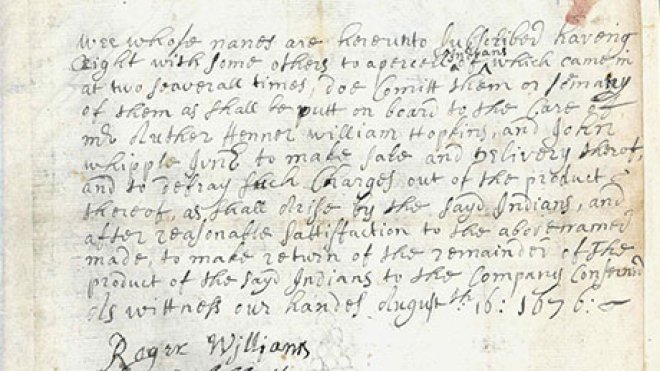 Wee whose names are hereunto subscribed haveing
Right with some others to a percell of Indians which came in
at two severall times, doe Comitt them or so many
of them as shall be putt on board to the Care of
mr Auther Fenner William Hopkins, and John
whipple Junr to make sale and Delivery therof,
and to defray such Charges out of the product
thereof, as shall Arise by the sayd Indians, and
after reasonable sattisfaction to the abovenamed
made, to make return of the remainder of The
product of the sayd Indians to the Company Conserned
As wittness our handes August th 16: 1676:
Roger Williams